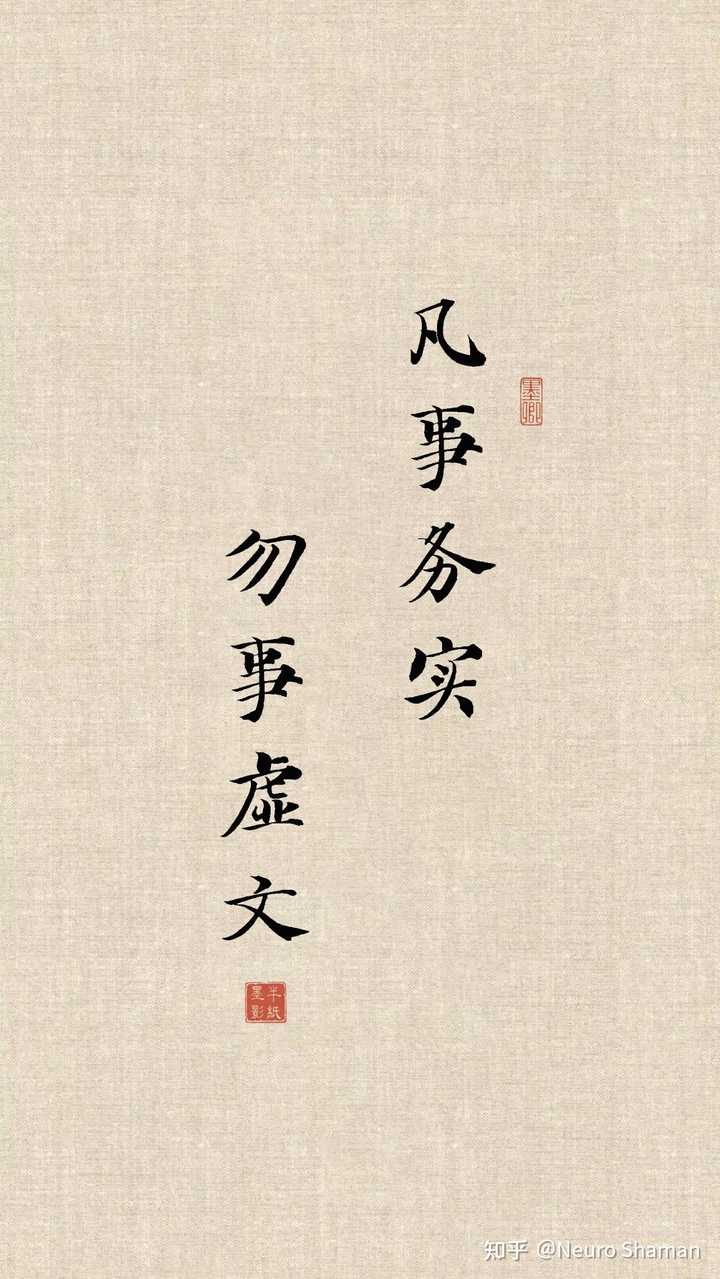 凡事务实
墨卿
勿事虚文
半纸
墨影
知乎 @Neuro Shaman